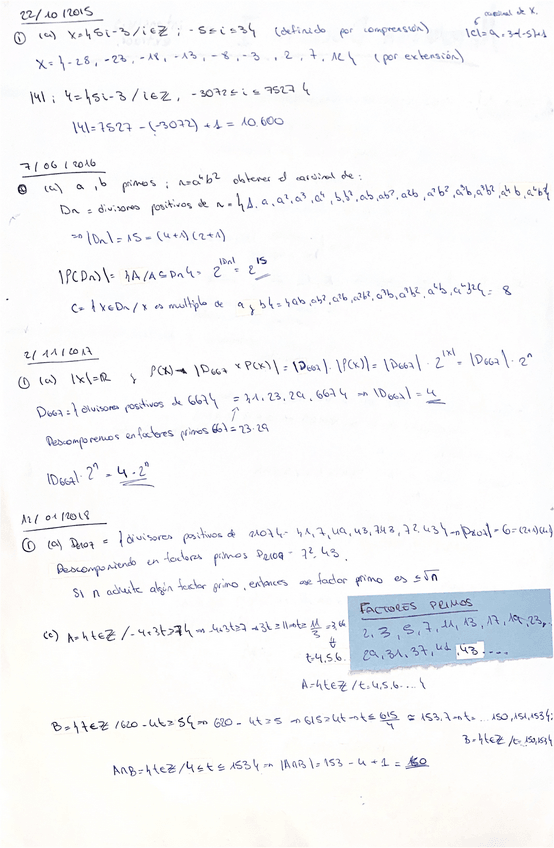 22/10/2015
① (a) X={5i-3/i∈Z ; -5≤i≤3} (definido por comprensión)
cardinal de X.
|C|=9, 3-(-5)+1
X={-28, -23, -18, -13, -8, -3, 2, 7, 12} (por extensión)
|Y| ; Y={5i-3/i∈Z, -3072≤i≤7527}
|Y|=7527-(-3072)+1=10.600
7/06/2016
(a) a, b primos ; n=a⁴b² obtener el cardinal de:
Dn = divisores positivos de n={1, a, a², a³, a⁴, b, b², ab, ab², a²b, a²b², a³b, a³b², a⁴b, a⁴b²}
⇒|Dn|=15=(4+1)(2+1)
|P(Dn)|={A/A⊆Dn}=2^|Dn|=2^15
C={x∈Dn/x es multiplo de a y b}={ab, ab², a²b, a²b², a³b, a³b², a⁴b, a⁴b²}=8
2/11/2017
① (a) |X|=n y P(X)→|D667 × P(X)|=|D667|·|P(X)|=|D667|·2^|X|=|D667|·2ⁿ
D667={divisores positivos de 667}={1, 23, 29, 667}⇒|D667|=4
Descomponemos en factores primos 667=23·29
|D667|·2ⁿ=4·2ⁿ
12/01/2018
① (a) D2107={divisores positivos de 2107}={1, 7, 49, 43, 7·43, 7²·43}⇒|D2107|=6=(2+1)(1+1)
Descomponiendo en factores primos D2107=7²·43.
Si n admite algún factor primo, entonces ese factor primo es ≤√n
FACTORES PRIMOS
2, 3, 5, 7, 11, 13, 17, 19, 23,
29, 31, 37, 41, 43....
(c) A={t∈Z/-4+3t≥7}⇒-4+3t≥7⇒3t≥11⇒t≥11/3=3,66
t=4,5,6.
A={t∈Z/t=4,5,6...}
B={t∈Z/620-4t≥5}⇒620-4t≥5⇒615≥4t⇒t≤615/4≅153,7⇒t=...150,151,153};
B={t∈Z/t=150,153}
A∩B={t∈Z/4≤t≤153}⇒|A∩B|=153-4+1=150